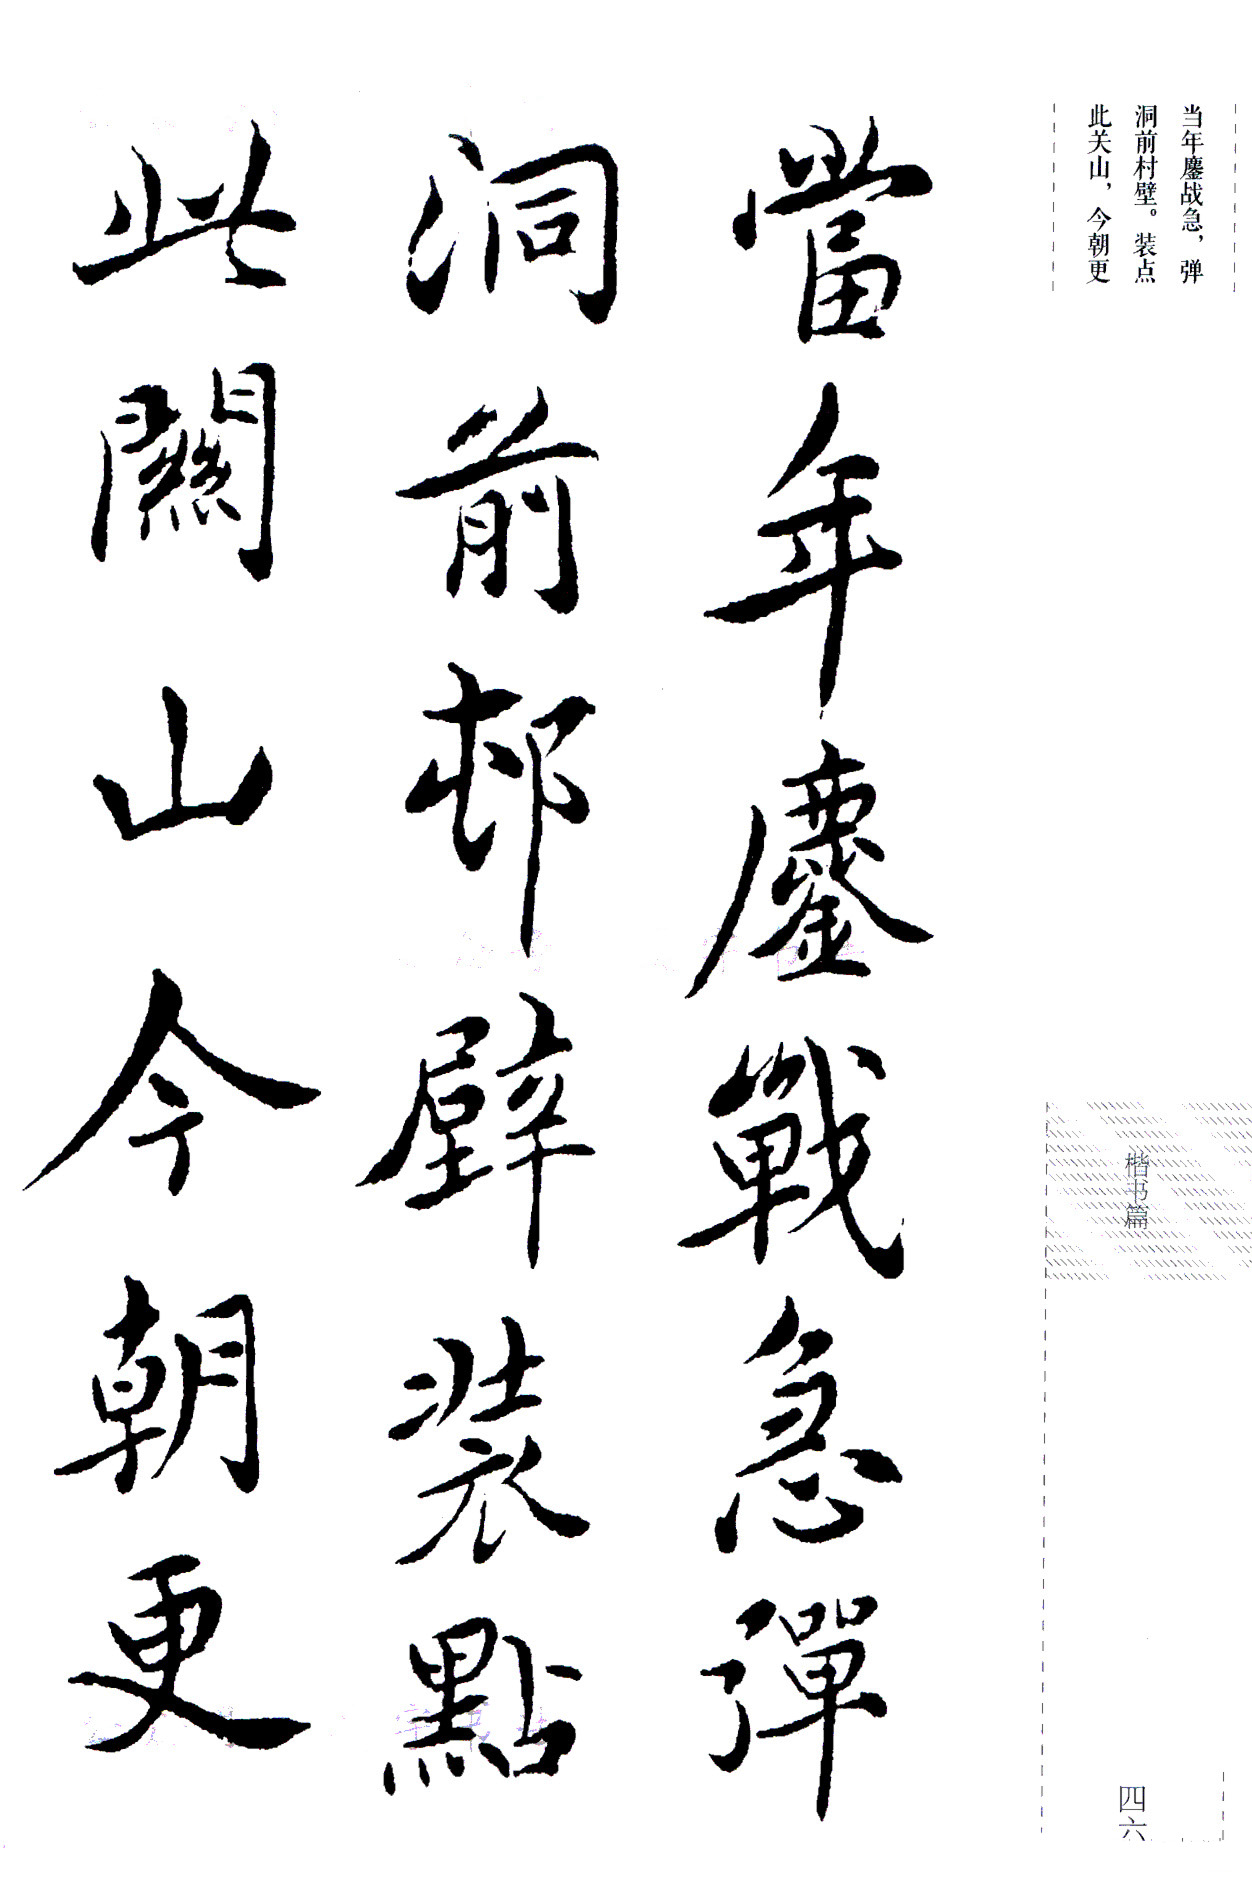 当年鏖战急，弹
洞前村壁。装点
此关山，今朝更
當年鏖戰急彈
洞前邨壁装點
此關山今朝更
楷书篇
四六